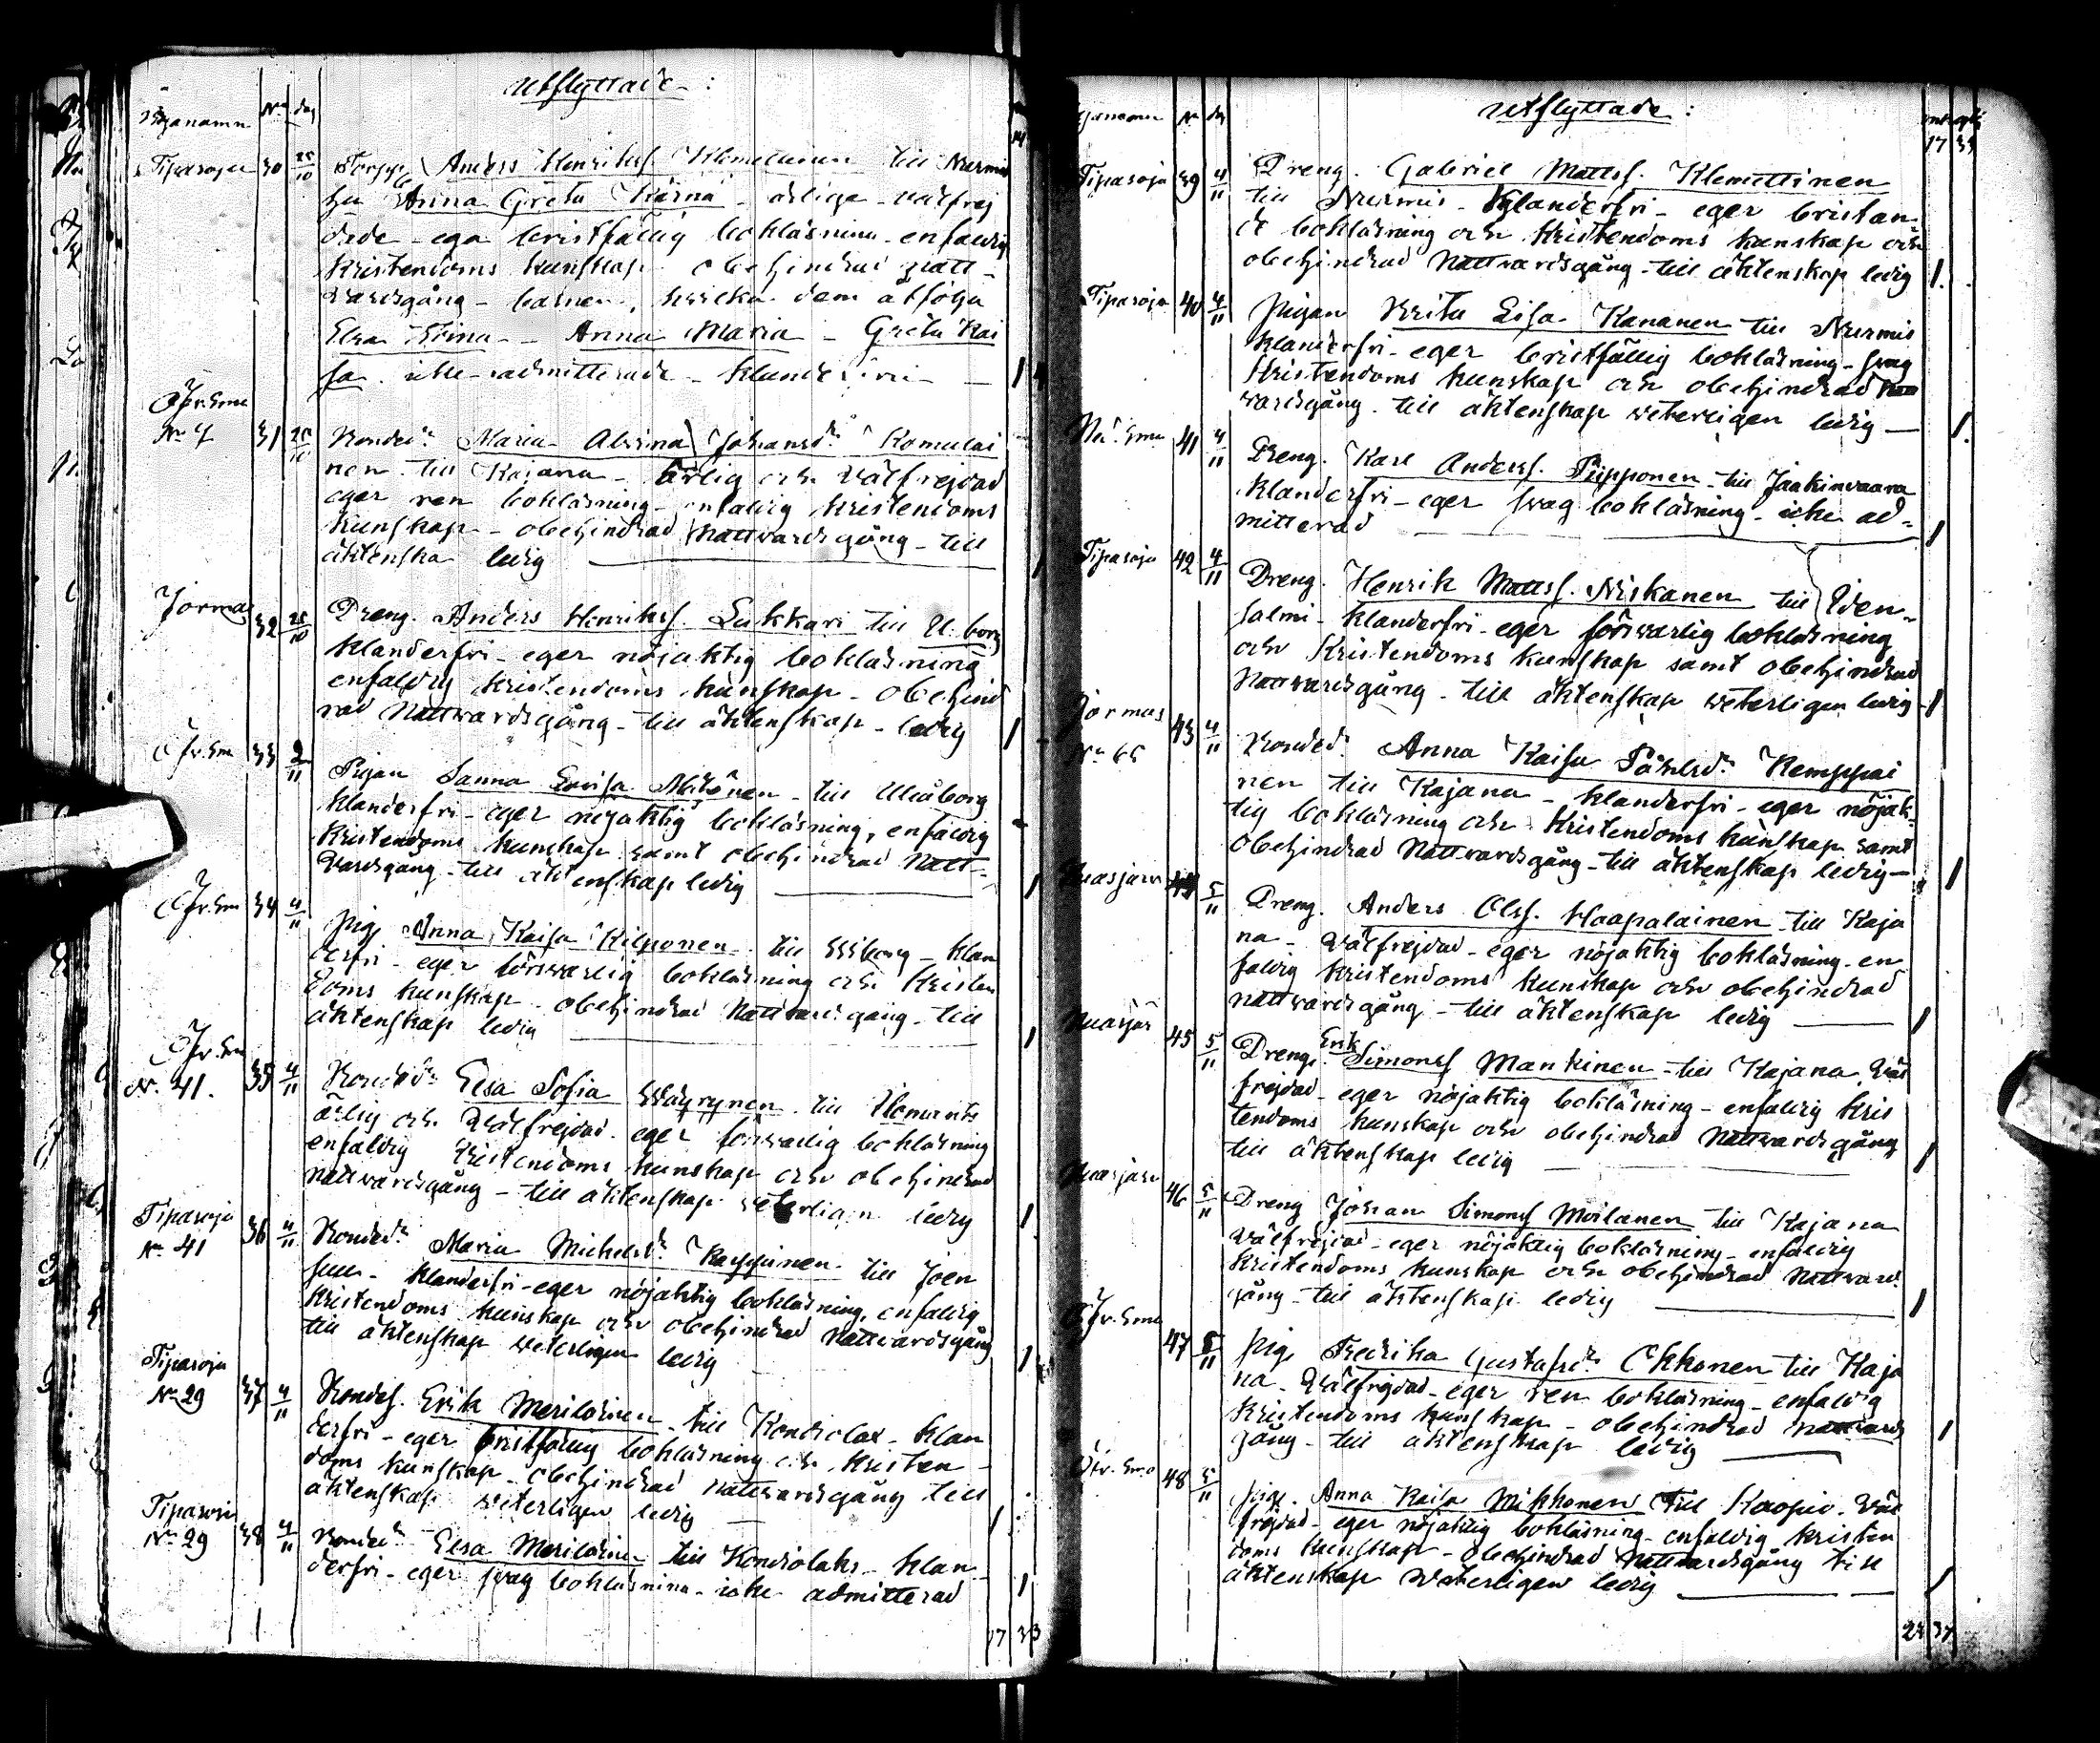 Utflyttade:
Byanamn No dag
Tipasoja 30 25/10 Torpp. Anders Henrikss. Klemettinen till Nurmis
hu Anna Greta Kärnä - ärlige - välfrej
dade - ega bristfällig bokläsning - enfaldig
Kristendoms kunskap obehindrad natt-
vardsgång - barnen, hwilka dem åtfölja
Elsa Stina - Anna Maria - Greta Kai
sa icke admitterade - klanderfri - 1 4
Öfv. Smo
No 7 31 25/10 Bonded:r Maria Alwina Johansd:r Komulai
nen till Kajana - ärlig och välfrejdad
eger ren bokläsning - enfaldig kristendoms
kunskap - obehindrad Nattvardsgång - till
äktenska ledig 1
Jormas 32 25/10 Dreng. Anders Henrikss. Lukkari till U:borg
klanderfri - eger nöjaktig bokläsning
enfaldig kristendoms kunskap - obehind
rad Nattvardsgång - till äktenskap - ledig 1
Öfv. Sm 33 2/11 Pigan Sanna Lovisa Mikkonen - till Uleåborg
klanderfri - eger nöjaktig bokläsning, enfaldig
Kristendoms kunskap samt obehindrad Natt-
vardsgång - till äktenskap ledig 1
Öfv. Sm 34 4/11 Pig. Anna Kaisa Kilponen till Wiborg - klan
derfri - eger försvarlig bokläsning och Kristen
doms kunskap - obehindrad Nattvardsgång - till
äktenskap ledig 1
Öfv. Sm
No. 41. 35 4/11 Bonded:r Elsa Sofia Wäyrynen till Ilomants
ärlig och välfrejdad. eger försvarlig bokläsning
enfaldig Kristendoms kunskap och obehindrad
nattvardsgång - till äktenskap veterligen ledig 1
Tipasoja
No 41 36 4/11 Bonded:r Maria Michelsd:r Karppinen till Joen
suu - klanderfri - eger nöjaktig bokläsning, enfaldig
Kristendoms kunskap och obehindrad Nattvardsgång
till äktenskap veterligen ledig 1
Tipasoja
No 29 37 4/11 Bondes. Erik Meriläinen till Kondiolax - klan
derfri - eger bristfällig bokläsning och kristen-
doms kunskap - obehindrad nattvardsgång till
äktenskap veterligen ledig 1
Tipasoja
No 29 38 4/11 Bonded:r Elsa Meriläinen till Kondiolaks - klan-
derfri - eger svag bokläsning - icke admitterad 1
17 33
Utflyttade:
Byanamn No dag
17 33
Tipasoja 39 4/11 Dreng. Gabriel Mattss. Klemettinen
till Nurmis - klanderfri - eger bristan-
de bokläsning och Kristendoms kunskap och
obehindrad Nattvardsgång - till äktenskap ledig 1.
Tipasoja 40 4/11 Pigan Brita Lisa Kananen till Nurmis
klanderfri - eger bristfällig bokläsning - svag
Kristendoms kunskap och obehindrad Natt
vardsgång till äktenskap veterligen ledig 1.
Ned. Smo 41 4/11 Dreng. Karl Anderss. Piipponen - till Jaakinvaara
klanderfri - eger svag bokläsning - icke ad=
mitterad 1
Tipasoja 42 4/11 Dreng. Henrik Mattss. Niskanen till Iden-
salmi - klanderfri - eger försvarlig bokläsning
och Kristendoms kunskap samt obehindrad
Nattvardsgång - till äktenskap veterligen ledig 1
Jormas
No 65 43 4/11 Bonded:r Anna Kaisa Påhlsd:r Kemppai
nen till Kajana - klanderfri - eger nöjak-
tig bokläsning och Kristendoms kunskap samt
obehindrad Nattvardsgång - till äktenskap ledig - 1
Nuasjärvi 44 5/11 Dreng. Anders Olss. Haapalainen till Kaja
na - välfrejdad - eger nöjaktig bokläsning - en
faldig kristendoms kunskap och obehindrad
nattvardsgång - till äktenskap ledig 1
Nuasjär 45 5/11 Dreng. Erik Simonss Mankinen - till Kajana väl
frejdad - eger nöjaktig bokläsning - enfaldig kris
tendoms kunskap och obehindrad Nattvardsgång
till äktenskap ledig 1
Nuasjärv 46 5/11 Dreng Johan Simonss Moilanen till Kajana
välfrejdad - eger nöjaktig bokläsning - enfaldig
Kristendoms kunskap och obehindrad Nattvard
gång - till äktenskap ledig 1
Öfv. Smo 47 5/11 Pig. Fredrika Gustafsd:r Okkonen till Kaja
na - välfrejdad - eger ren bokläsning - enfaldig
Kristendoms kunskap - obehindrad nattvards
gång - till äktenskap ledig 1
Öfv. Smo 48 5/11 Pig. Anna Kaisa Mikkonen till Kuopio. Väl
frejdad - eger nöjaktig bokläsning - enfaldig kristen
doms kunskap - obehindrad Nattvardsgång till
äktenskap veterligen ledig 1
23 37